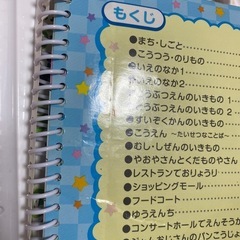 もくじ
●まち・しごと
●こうつう・のりもの
●いえのなか1
いえのなか2
どうぶつえんのいきもの 1
どうぶつえんのいきもの 2
●すいぞくかんのいきもの
●こうえん 〜たいせつなことば〜
●むし・しぜんのいきもの
●やおやさんとくだものやさん
●レストランでおりょうり
●ショッピングモール
●フードコート
●ゆうえんち
●コンサートホールでえんそうか
おじさんのパンこうじょ